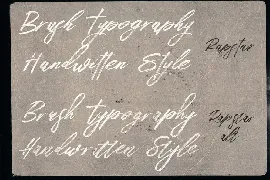 Brush typography
Handwritten Style
Rapstar
Brush typography
Handwritten Style
Rapstar
alt